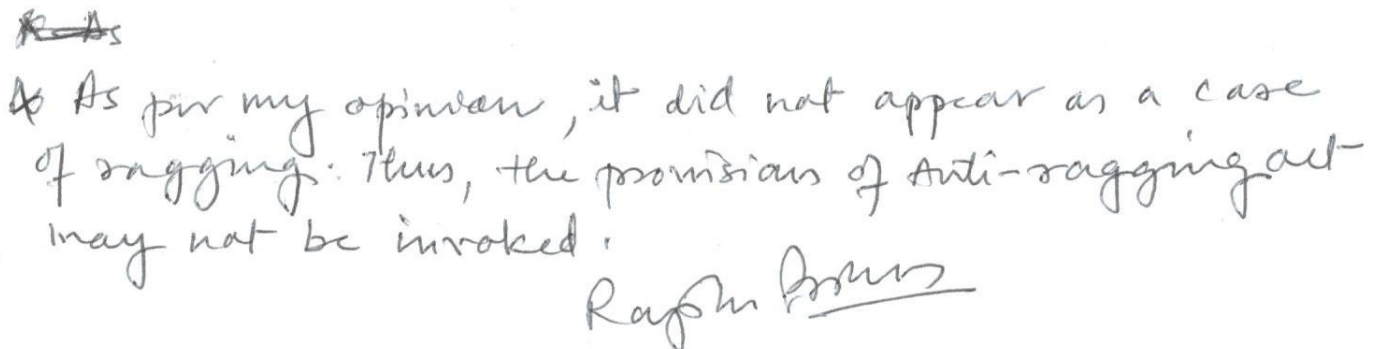 As per my opinion, it did not appear as a case
of ragging. Thus, the provisions of Anti-ragging act
may not be invoked.